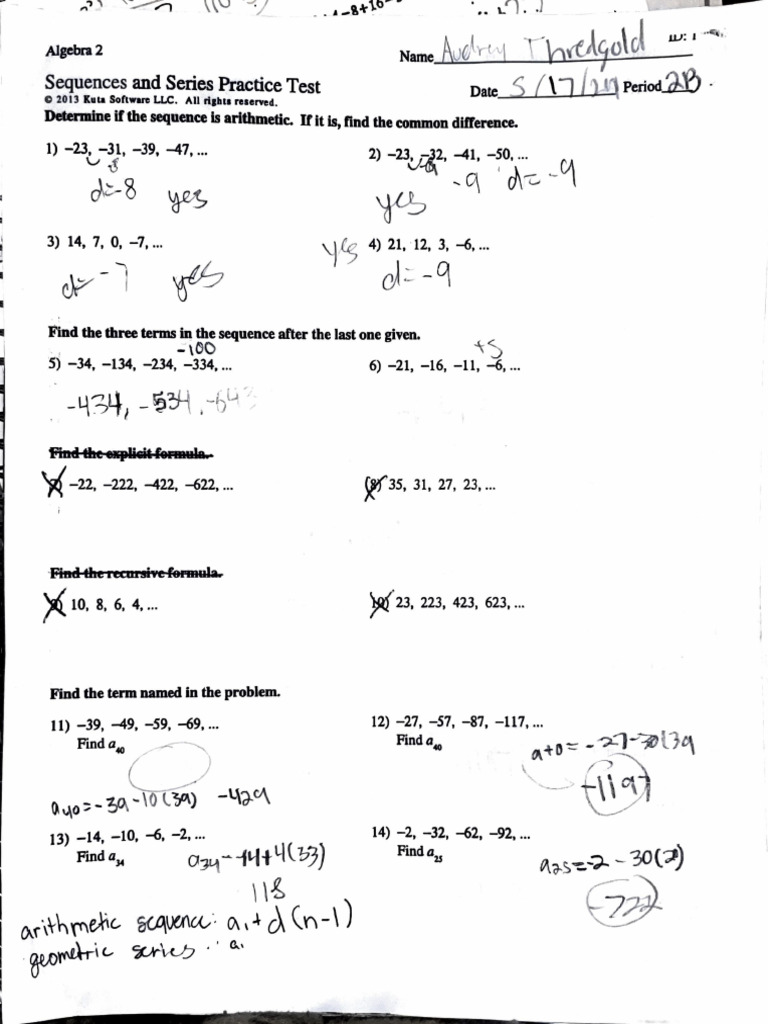 -8+16
Algebra 2
Name Audrey Thredgold
ID: 1
Sequences and Series Practice Test
Date 5/17/ Period 2B
© 2013 Kuta Software LLC. All rights reserved.
Determine if the sequence is arithmetic. If it is, find the common difference.
1) –23, –31, –39, –47, ...
2) –23, –32, –41, –50, ...
-8
-9
d=-8 yes
-9 d=-9
yes
3) 14, 7, 0, –7, ...
yes 4) 21, 12, 3, –6, ...
d=-7 yes
d=-9
Find the three terms in the sequence after the last one given.
-100
+5
5) –34, –134, –234, –334, ...
6) –21, –16, –11, –6, ...
-434, -534, -643
Find the explicit formula.
–22, –222, –422, –622, ...
8) 35, 31, 27, 23, ...
Find the recursive formula.
9) 10, 8, 6, 4, ...
10) 23, 223, 423, 623, ...
Find the term named in the problem.
11) –39, –49, –59, –69, ...
Find a40
12) –27, –57, –87, –117, ...
Find a40
a40 = -27-30(39
-1197
a40=-39-10(39) -429
13) –14, –10, –6, –2, ...
Find a34
a34=-14+4(33)
118
14) –2, –32, –62, –92, ...
Find a25
a25=-2-30(2)
-722
arithmetic sequence: a1+d(n-1)
geometric series: a1